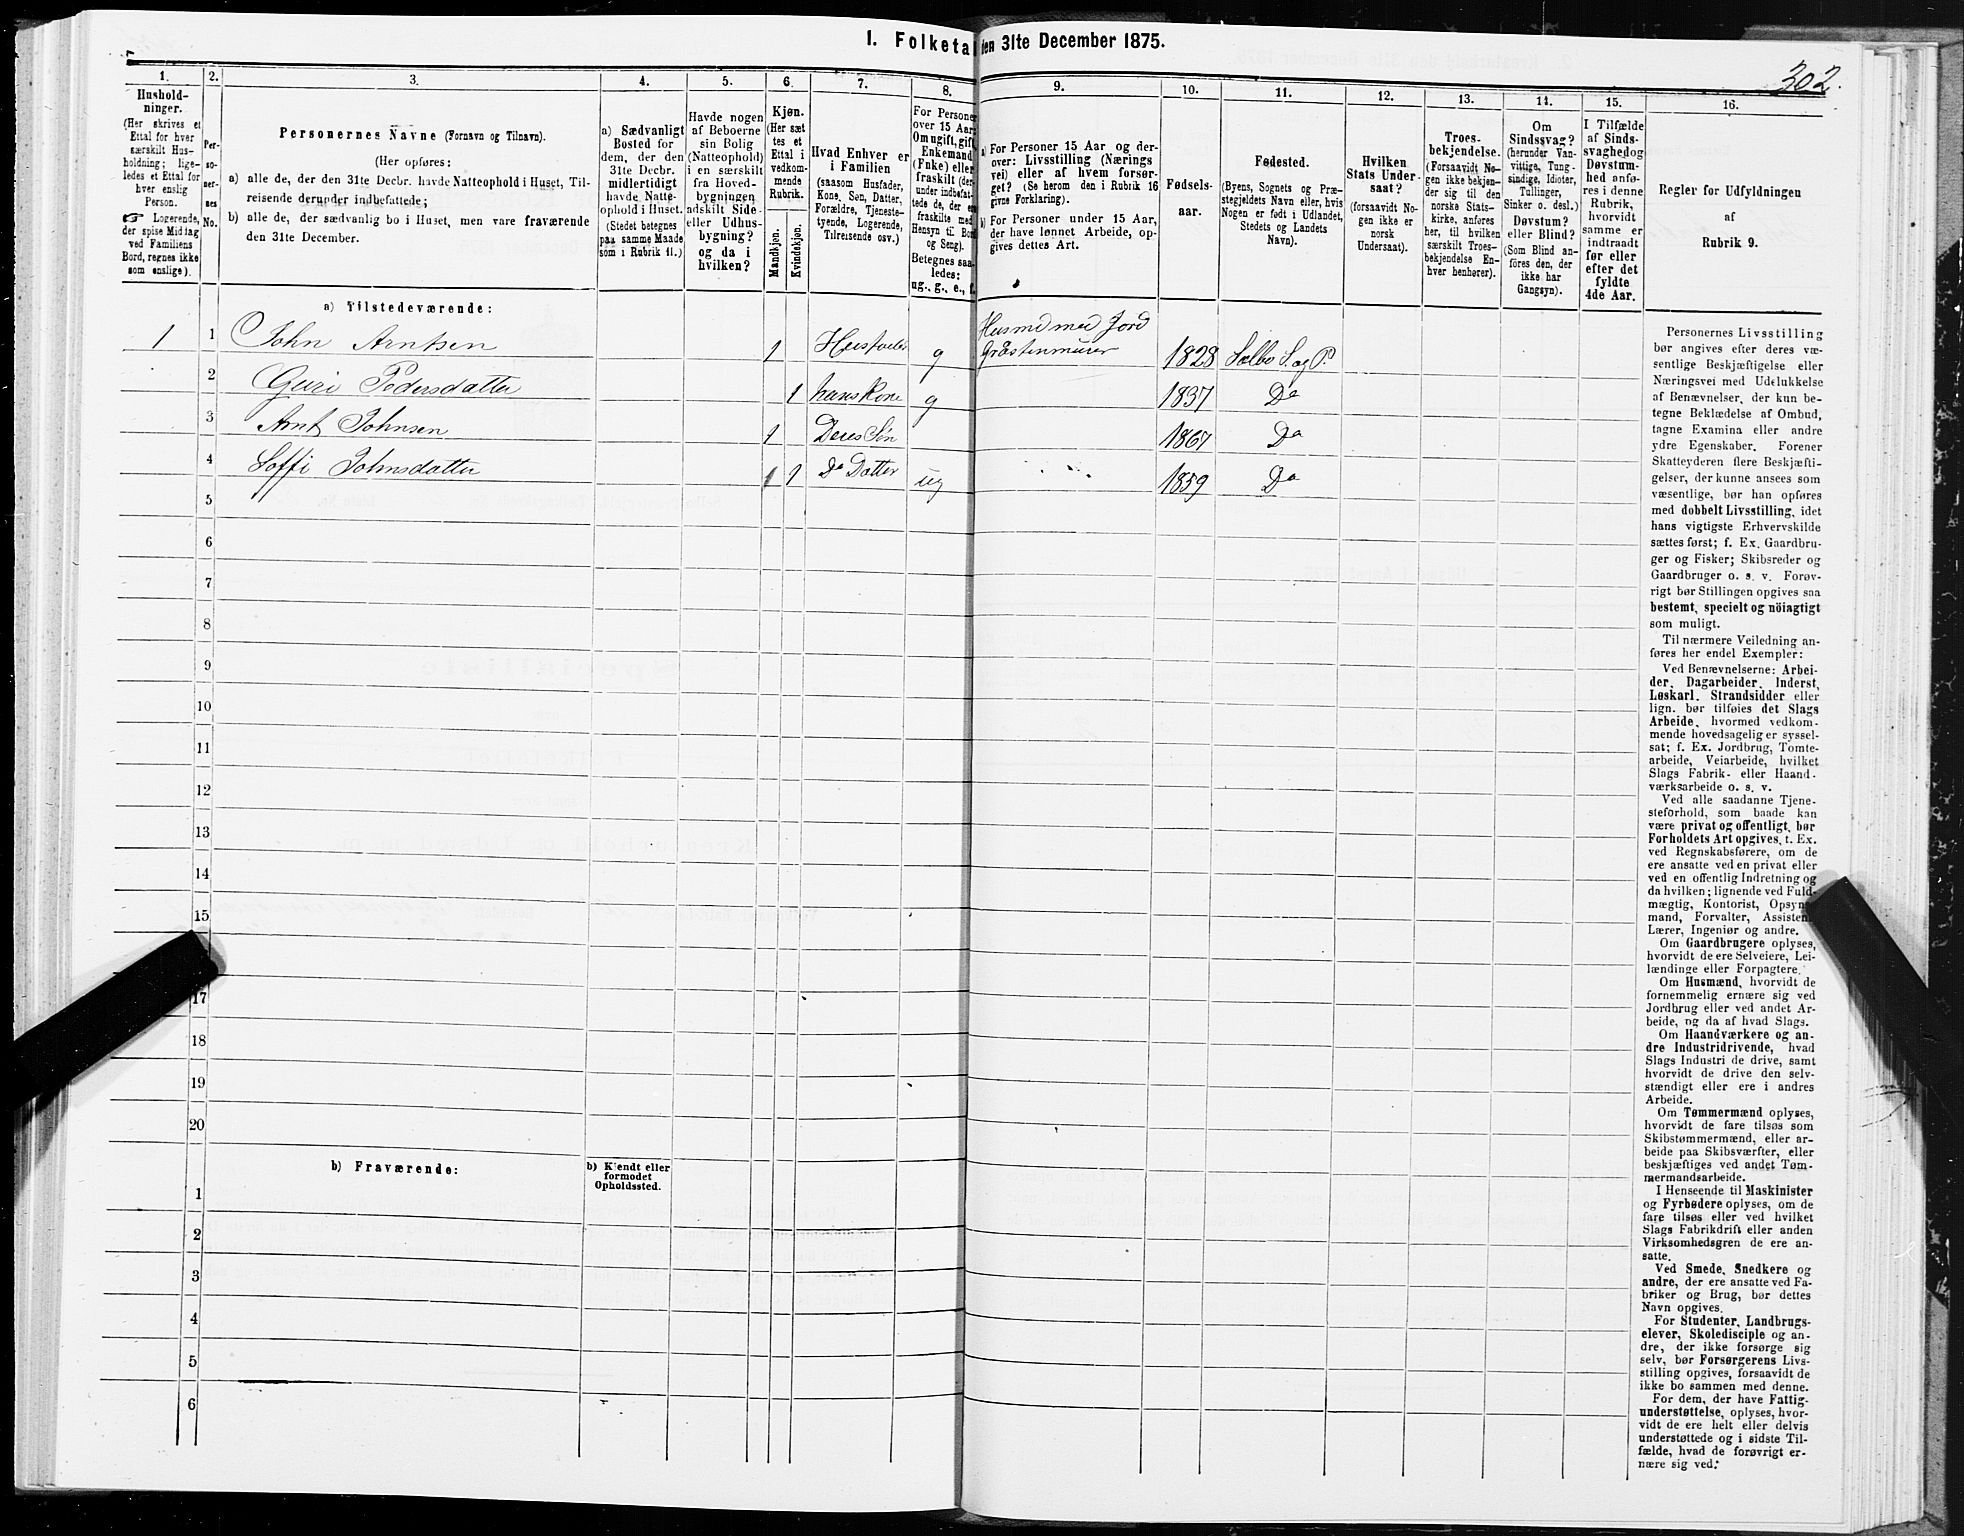 I. Folketal den 31te December 1875.
302.
1.
2.
3.
4.
5.
6.
7.
8.
9.
10.
11.
12.
13.
14.
15.
16.
Hushold-
ninger.
(Her skrives et
Ettal for hver
særskilt Hus-
holdning; lige-
ledes et Ettal for
hver enslig
Person.
☞ Logerende,
der spise Middag
ved Familiens
Bord, regnes ikke
som enslige).
Per-
so-
ner-
nes
No.
Personernes Navne (Fornavn og Tilnavn).
(Her opføres:
a) alle de, der den 31te Decbr. havde Natteophold i Huset, Til-
reisende derunder indbefattede;
b) alle de, der sædvanlig bo i Huset, men vare fraværende
den 31te December.
a) Sædvanligt
Bosted for
dem, der den
31te Decbr.
midlertidigt
havde Natte-
ophold i Huset.
(Stedet betegnes
paa samme Maade
som i Rubrik 11.)
Havde nogen
af Beboerne
sin Bolig
(Natteophold)
i en særskilt
fra Hoved-
bygningen
adskilt Side-
eller Udhus-
bygning?
og da i
hvilken?
Kjøn.
(Her sæt-
tes et
Ettal i
vedkom-
mende
Rubrik.
Mandkjøn.
Kvindekjøn.
Hvad Enhver er
i Familien
(saasom Husfader,
Kone, Søn, Datter,
Forældre, Tjeneste-
tyende, Logerende,
Tilreisende osv.)
For Personer
over 15 Aar:
Om ugift, gift,
Enkemand
(Enke) eller
fraskilt (der-
under indbefat-
tede de, der ere
fraskilte med
Hensyn til Bord
og Seng).
Betegnes saa-
ledes:
ug., g., e., f.
a) For Personer 15 Aar og der-
over: Livsstilling (Nærings
vei) eller af hvem forsør-
get? (Se herom den i Rubrik 16
givne Forklaring).
b) For Personer under 15 Aar,
der have lønnet Arbeide, op-
gives dettes Art.
Fødsels-
aar.
Fødested.
(Byens, Sognets og Præ-
stegjeldets Navn eller, hvis
Nogen er født i Udlandet,
Stedets og Landets
Navn).
Hvilken
Stats Under-
saat?
(forsaavidt No-
gen ikke er
norsk
Undersaat).
Troes-
bekjendelse.
(Forsaavidt No-
gen ikke bekjen-
der sig til den
norske Stats-
kirke, anføres
her, til hvilken
særskilt Troes-
bekjendelse En-
hver henhører).
Om
Sindssvag?
(herunder Van-
vittige, Tung-
sindige, Idioter,
Tullinger,
Sinker o. desl.)
Døvstum?
eller Blind?
(Som Blind an-
føres den, der
ikke har
Gangsyn).
I Tilfælde
af Sinds-
svaghed og
Døvstum-
hed anfø-
res i denne
Rubrik,
hvorvidt
samme er
indtraadt
før eller
efter det
fyldte
4de Aar.
Regler for Udfyldningen
af
Rubrik 9.
a) Tilstedeværende:
1 1 John Arntsen 1 Husfader g Husmd med Jord
Gråstenmurer 1828 Sælbo S. og P.
2 Guri Pedersdatter 1 hans Kone g 1837 Do
3 Arnt Johnsen 1 Deres Søn 1867 Do
4 Soffi Johnsdatter 1 Do Datter ug 1859 Do
5
6
7
8
9
10
11
12
13
14
15
17
18
19
20
b) Fraværende:
b) Kjendt eller
formodet
Opholdssted.
1
2
3
4
5
6
Personernes Livsstilling
bør angives efter deres væ-
sentlige Beskjæftigelse eller
Næringsvei med Udelukkelse
af Benævnelser, der kun be-
tegne Beklædelse af Ombud,
tagne Examina eller andre
ydre Egenskaber. Forener
Skatteyderen flere Beskjæfti-
gelser, der kunne ansees som
væsentlige, bør han opføres
med dobbelt Livsstilling, idet
hans vigtigste Erhvervskilde
sættes først; f. Ex. Gaardbru-
ger og Fisker; Skibsreder og
Gaardbruger o. s. v. Forøv-
rigt bør Stillingen opgives saa
bestemt, specielt og nöiagtigt
som muligt.
Til nærmere Veiledning an-
føres her endel Exempler:
Ved Benævnelserne: Arbei-
der, Dagarbeider, Inderst,
Løskarl, Strandsidder eller
lign. bør tilføies det Slags
Arbeide, hvormed vedkom-
mende hovedsagelig er syssel-
sat; f. Ex. Jordbrug, Tomte-
arbeide, Veiarbeide, hvilket
Slags Fabrik- eller Haand-
værksarbeide o. s. v.
Ved alle saadanne Tjene-
steforhold, som baade kan
være privat og offentligt, bør
Forholdets Art opgives, t. Ex.
ved Regnskabsførere, om de
ere ansatte ved en privat eller
ved en offentlig Indretning og
da hvilken; lignende ved Fuld-
mægtig, Kontorist, Opsyns-
mand, Forvalter, Assistent,
Lærer, Ingeniør og andre.
Om Gaardbrugere oplyses,
hvorvidt de ere Selveiere, Lei-
lændinge eller Forpagtere.
Om Husmænd, hvorvidt de
fornemmelig ernære sig ved
Jordbrug eller ved andet Ar-
beide, og da af hvad Slags.
Om Haandværkere og an-
dre Industridrivende, hvad
Slags Industri de drive, samt
hvorvidt de drive den selv-
stændigt eller ere i andres
Arbeide.
Om Tømmermænd oplyses,
hvorvidt de fare tilsøs som
Skibstømmermænd, eller ar-
beide paa Skibsværfter, eller
beskjæftiges ved andet Tøm-
mermandsarbeide.
I Henseende til Maskinister
og Fyrbødere oplyses, om de
fare tilsøs eller ved hvilket
Slags Fabrikdrift eller anden
Virksomhedsgren de ere an-
satte.
Ved Smede, Snedkere og
andre, der ere ansatte ved Fa-
briker og Brug, bør dettes
Navn opgives.
For Studenter, Landbrugs-
elever, Skoledisciple og an-
dre, der ikke forsørge sig
selv, bør Forsørgerens Livs-
stilling opgives, forsaavidt de
ikke bo sammen med denne.
For dem, der have Fattig-
understøttelse, oplyses, hvor-
vidt de ere helt eller delvis
understøttede og i sidste Til-
fælde, hvad de forøvrigt er-
nære sig ved.